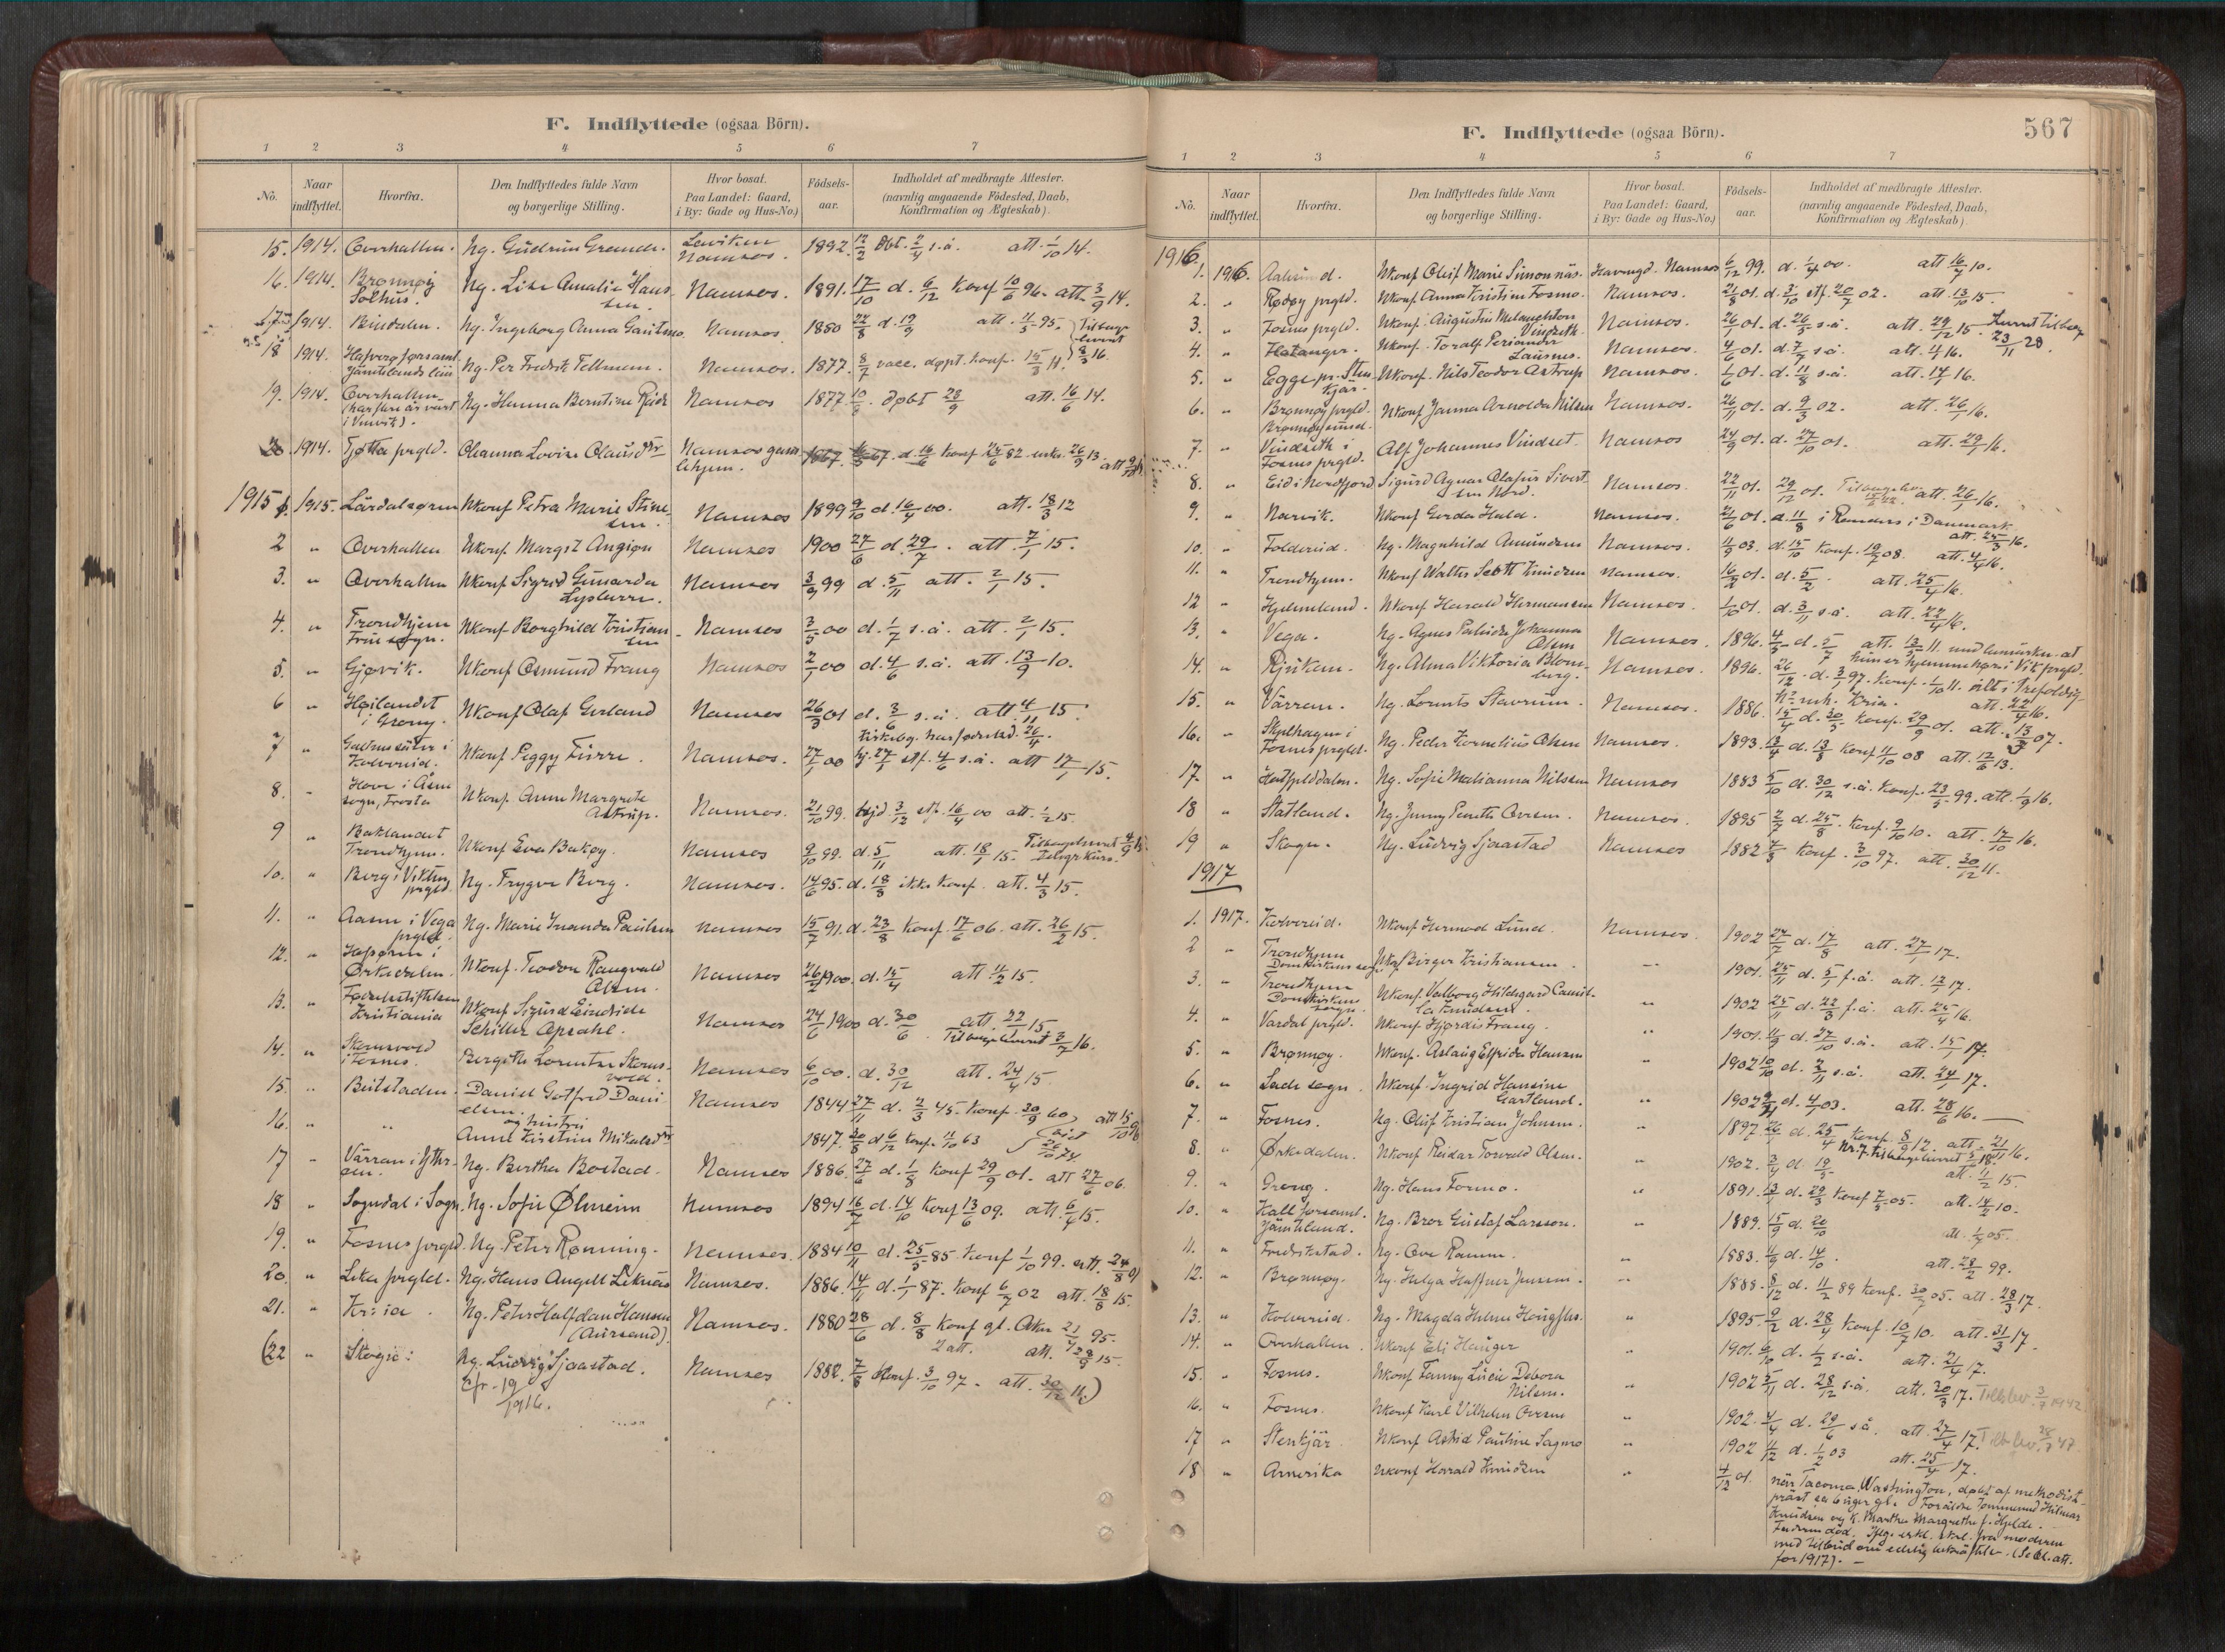 F. Indflyttede (ogsaa Börn).
1 2 3 4 5 6 7
No. Naar indflyttet. Hvorfra. Den Indflyttedes fulde Navn og borgerlige Stilling. Hvor bosat. Paa Landet: Gaard, i By: Gade og Hus-No.) Födsels-aar. Indholdet af medbragte Attester. (navnlig angaaende Födested, Daab, Konfirmation og Ægteskab).
15. 1914. Overhallen. Ng. Gudrun Namsos. 1892. 12/2 Dbt. 2/4 s.å. att. 1/10 14.
16. 1914. Brønnøy Solhus. Ng. Lise Amalie Hansen Namsos. 1891. 17/10 d. 6/12 konf 10/6 96. att. 3/9 14.
17 1914. Bindalen. Ng. Ingeborg Anna Namsos 1880 22/8 d. 19/9 att. 11/5 95.
18 1914. Ng. Per Fredrik Tellmann. Namsos. 1877. 8/7 vacc. døpt. konf. 15/3 11. 2/3 16.
19. 1914. Overhallen Ng. Hanna Berntine Namsos 1877 10/8. døbt 28/9 att. 16/6 14.
20. 1914. Tjøtta prgld. Oleanna Lovise Namsos 1867. d. 16/6 konf 25/6 82. 26/9 13.
1915
1. 1915. Lärdalsøren Ukonf Petra Marie Namsos 1899 9/10 d. 16/4 00. att. 18/3 12
2 " Overhallen Ukonf. Margit Angion Namsos 1900 27/6 d. 29/7. att 7/1 15.
3. " Overhallen Ukonf Sigrid Gunarda Namsos 3/9 99 d. 5/11 att. 2/1 15.
4. " Trondhjem Frue sogn. Ukonf Borghild Kristiansen Namsos 3/5 00 d. 1/7 s.å. att. 2/1 15.
5. " Gjøvik. Ukonf Osmund Frang Namsos 2/1 00 d. 4/6 s.å. att. 13/9 10.
6 " Høilandet i Grong. Ukonf Olaf Gerland Namsos 26/3 01 d. 3/6 s.å. att. 4/11 15.
7 " i Kolvereid. Ukonf Peggy Namsos. 27/1 00 hj. 27/1 stf. 4/6 s.å. att 17/1 15.
8. " sogn, Frosta Ukonf. Anne Margrete Astrup. Namsos. 21/10 99. hjd 3/12 stf. 16/4 00 att. 1/2 15.
9 " Baklandet Trondhjem. Ukonf Eva Bakøy. Namsos 9/10 99. d. 5/11 att. 18/1 15. Tilbageleveret 4/9 15
10. " Berg i Vikten prgld. Ng. Trygve Berg. Namsos. 14/6 95. d. 18/8 ikke konf. att. 4/3 15.
11. " Aasen i Vega prgld. Ng. Marie Paulsen Namsos 15/7 91. d. 23/8 konf. 17/6 06. att. 26/2 15.
12. " i Ørkedalen. Ukonf. Teodor Rangvald Olsen. Namsos 26/2 1900. d. 15/4 att 11/2 15.
13. " Fødselsstiftelsen Kristiania Ukonf Sigurd Eindride Schiller Opdahl. Namsos 24/6 1900 d. 30/6 att. 22/4 15. Tilbageleveret 3/7 16.
14. " Skomsvold i Fosnes. Bergith Lorentze Skomsvold. Namsos 6/10 00. d. 30/12 att. 24/4 15
15. " Beitstaden. Daniel Gotfred Danielsen Namsos 1844 27/11 d. 2/3 45. konf. 30/9 60
16. " " og hustru Anne Kirstine 1847. 30/8 d 6/12 konf. 11/10 63
17 " Värran i Ytterøen. Ng. Bertha Bostad. Namsos 1886. 27/6 d. 1/8 konf 29/9 01. att 27/6 06.
18 " Sogndal i Sogn. Ng. Sofie Ølmeim Namsos 1894 16/7 d. 14/10 konf 13/6 09. att. 6/4 15.
19. " Fosnes prgld. Ng. Peter Rønning. Namsos. 1884 10/11 d. 25/5 85 konf 1/10 99. att. 24/8 01
20. " Leka prgld. Ng. Hans Angell Leknäs Namsos. 1886. 14/11 d. 1/1 87. konf 6/7 02 att. 18/8 15.
21. " Kr:ia. Ng. Peter Halfdan Hansen (Aursand). Namsos. 1880 28/6 d. 8/8 konf gl. Aker 21/4 95. 2 att. att. 28/9 15.
(22 " Skogn: Ng. Ludvig Sjaastad. Namsos 1882. 7/8 konf. 3/10 97. att. 30/12 11.)
Cfr. 19/1916.
567
F. Indflyttede (ogsaa Börn).
1 2 3 4 5 6 7
No. Naar indflyttet. Hvorfra. Den Indflyttedes fulde Navn og borgerlige Stilling. Hvor bosat. Paa Landet: Gaard, i By: Gade og Hus-No.) Födsels-aar. Indholdet af medbragte Attester. (navnlig angaaende Födested, Daab, Konfirmation og Ægteskab).
1916.
1. 1916. Aalesund. Ukonf Oluf Marie Simonnäs. Havnegd. Namsos 6/12 99. d. 1/4 00. att 16/4 10.
2. " Rødøy prgld. Ukonf. Anna Kristine Fosmo. Namsos. 21/8 01. d. 3/10 stf. 20/7 02. att. 13/10 15.
3. " Fosnes prgld. Ukonf. Augustin Vindseth. Namsos. 26/1 01. d. 26/5 s.å. att. 29/12 15. 23/11 20.
4. " Ukonf. Toralf Periander Namsos. 4/6 01. d. 7/7 s.å. att. 4/1 16.
5. " Egge pr. Stenkjär. Ukonf. Nils Teodor Astrup Namsos. 1/6 01. d. 11/8 s.å. att. 14/1 16.
6. " Brønnøy prgld. Ukonf Janna Arnolda Nilsen Namsos. 26/11 01. d. 9/3 02. att. 26/1 16.
7. " Vindseth i Fosnes prgld. Alf Johannes Vindset Namsos 24/9 01. d. 27/10 01. att. 29/1 16.
8. " Eid i Nordfjord Sigurd Agnar Olafur Sivertsen Nord. Namsos. 22/11 01. 29/12 01. att. 26/1 16.
9. " Narvik. Ukonf Gerda Hald. Namsos. 21/6 01. d. 11/8 i Randers i Danmark att. 25/3 16.
10. " Foldereid. Ng. Magnhild Amundsen Namsos. 11/9 03. d. 15/10 konf. 19/7 08. att. 4/4 16.
11. " Trondhjem. Ukonf Walter Scott Knudsen Namsos. 16/2 01. d. 5/2. att. 25/4 16.
12 " Hjelmeland. Ukonf Harald Hermansen Namsos. 1/10 01. d. 3/11 s.å. att. 22/4 16.
13. " Vega. Ng. Agnes Johanna Olsen Namsos. 1896. 4/5 d. 5/7 att. 13/5 11. med bemärkn. at hun er hjemmehør. i Vik prgld.
14. " Rjukan. Ng. Alma Viktoria Blomberg. Namsos. 1896. 26/12. d. 3/1 97. konf. 1/10 11. alt i Trefoldig- att. 22/4 16.
15. " Värran. Ng. Lorents Stavrum. Namsos. 1886. 15/4 d. 30/5 konf 29/9 01. att. 13/3 07.
16. " i Fosnes prgld. Ng. Peder Kornelius Olsen Namsos. 1893. 13/4 d. 13/8 konf 11/10 08 att. 12/6 13.
17. " Hatfjelddalen. Ng. Sofie Malianna Nilsen Namsos 1883 5/10 d. 30/12 s.å. konf. 23/5 99. att. 1/9 16.
18 " Statland. Ng. Jenny Ovesen. Namsos. 1895 2/7 d. 25/8. konf. 9/10 10. att. 17/10 16.
19 " Skogn. Ng. Ludvig Sjaastad Namsos 1882 7/8 konf. 3/10 97. att. 30/12 11.
1917
1. 1917. Kolvereid. Ukonf Hermod Lund. Namsos. 1902 27/7 d. 17/8 att. 27/1 17.
2 " Trondhjem Domkirkens sogn Ukf Birger Kristiansen. " 1901. 25/11 d. 5/1 f.å. att. 12/1 17.
3. " Trondhjem Domkirkens sogn. Ukonf. Valborg Hildegard Camilla Knudsen. " 1902 25/1 d. 22/3 f.å. att. 25/4 16.
4. " Vardal prgld. Ukonf Hjørdis Frang. " 1901. 11/9 d. 27/10 s.å. att. 15/1 17.
5. " Brønnøy. Ukonf. Aslaug Elfrida Hansen " 1902 10/10 d. 2/11 s.å. att. 24/1 17.
6. " Lade sogn. Ukonf Ingrid Hansine Gartland. " 1902 d. 4/1 03. att. 28/6 16.
7. " Fosnes. Ng. Oluf Kristian Johnsen. " 1897. 26/1 d. 25/4 konf. 8/9 12. att. 21/11 16.
Nr. 7. tilbageleveret
8. " Ørkedalen. Ukonf Reidar Torvald Olsen. " 1902. 3/4 d. 19/5 att. 1/2 15.
9. " Grong. Ng. Hans Formo. " 1891. 13/1 d. 29/3 konf 7/5 05. att. 14/2 10.
10. " Hall forsaml. Jämtland. Ng. Bror Gustaf Larsson. " 1889. 15/9 d. 20/10 att. 1/5 05.
11. " Fredrikstad. Ng. Ove Ramm. " 1883. 11/9 d. 14/10. att. 28/2 99.
12. " Brønnøy. Ng. Helga Haffner Jensen. " 1888. 8/12 d. 11/2 89 konf. 30/7 05. att. 28/3 17.
13. " Kolvereid. Ng. Magda Helene " 1895. 9/2 d. 28/4 konf. 10/7 10. att. 31/3 17.
14. " Overhallen. Ukonf Eli Hauger " 1901. d. 1/2 s.å. att. 21/4 17.
15. " Fosnes. Ukonf Fanny Lucie Debora Nilsen. " 1902 2/11 d. 28/12 s.å. att. 20/3 17. Tilb.lev. 3/7 1942
16. " Fosnes. Ukonf Karl Vilhelm Ovesen " 1902. 4/4 d. 29/6 så. att. 27/4 17. Tilb. lev. 28/7 47
17 " Stenkjär Ukonf Astrid Pauline Sagmo " 1902 11/12 d. 1/2 03 att. 25/4 17.
18 " Amerika Ukonf Harald Knudsen " 4/12 01. när Tacoma, Washington, døbt af methodist-
präst Foräldre Hilmar
Knudsen og k. Martha Margrethe f. Hjelde.
Faderen død. Iflg. erkl. fra moderen
med tilbud om edelig bekräftelse. (Se bl. att.
for 1917). —